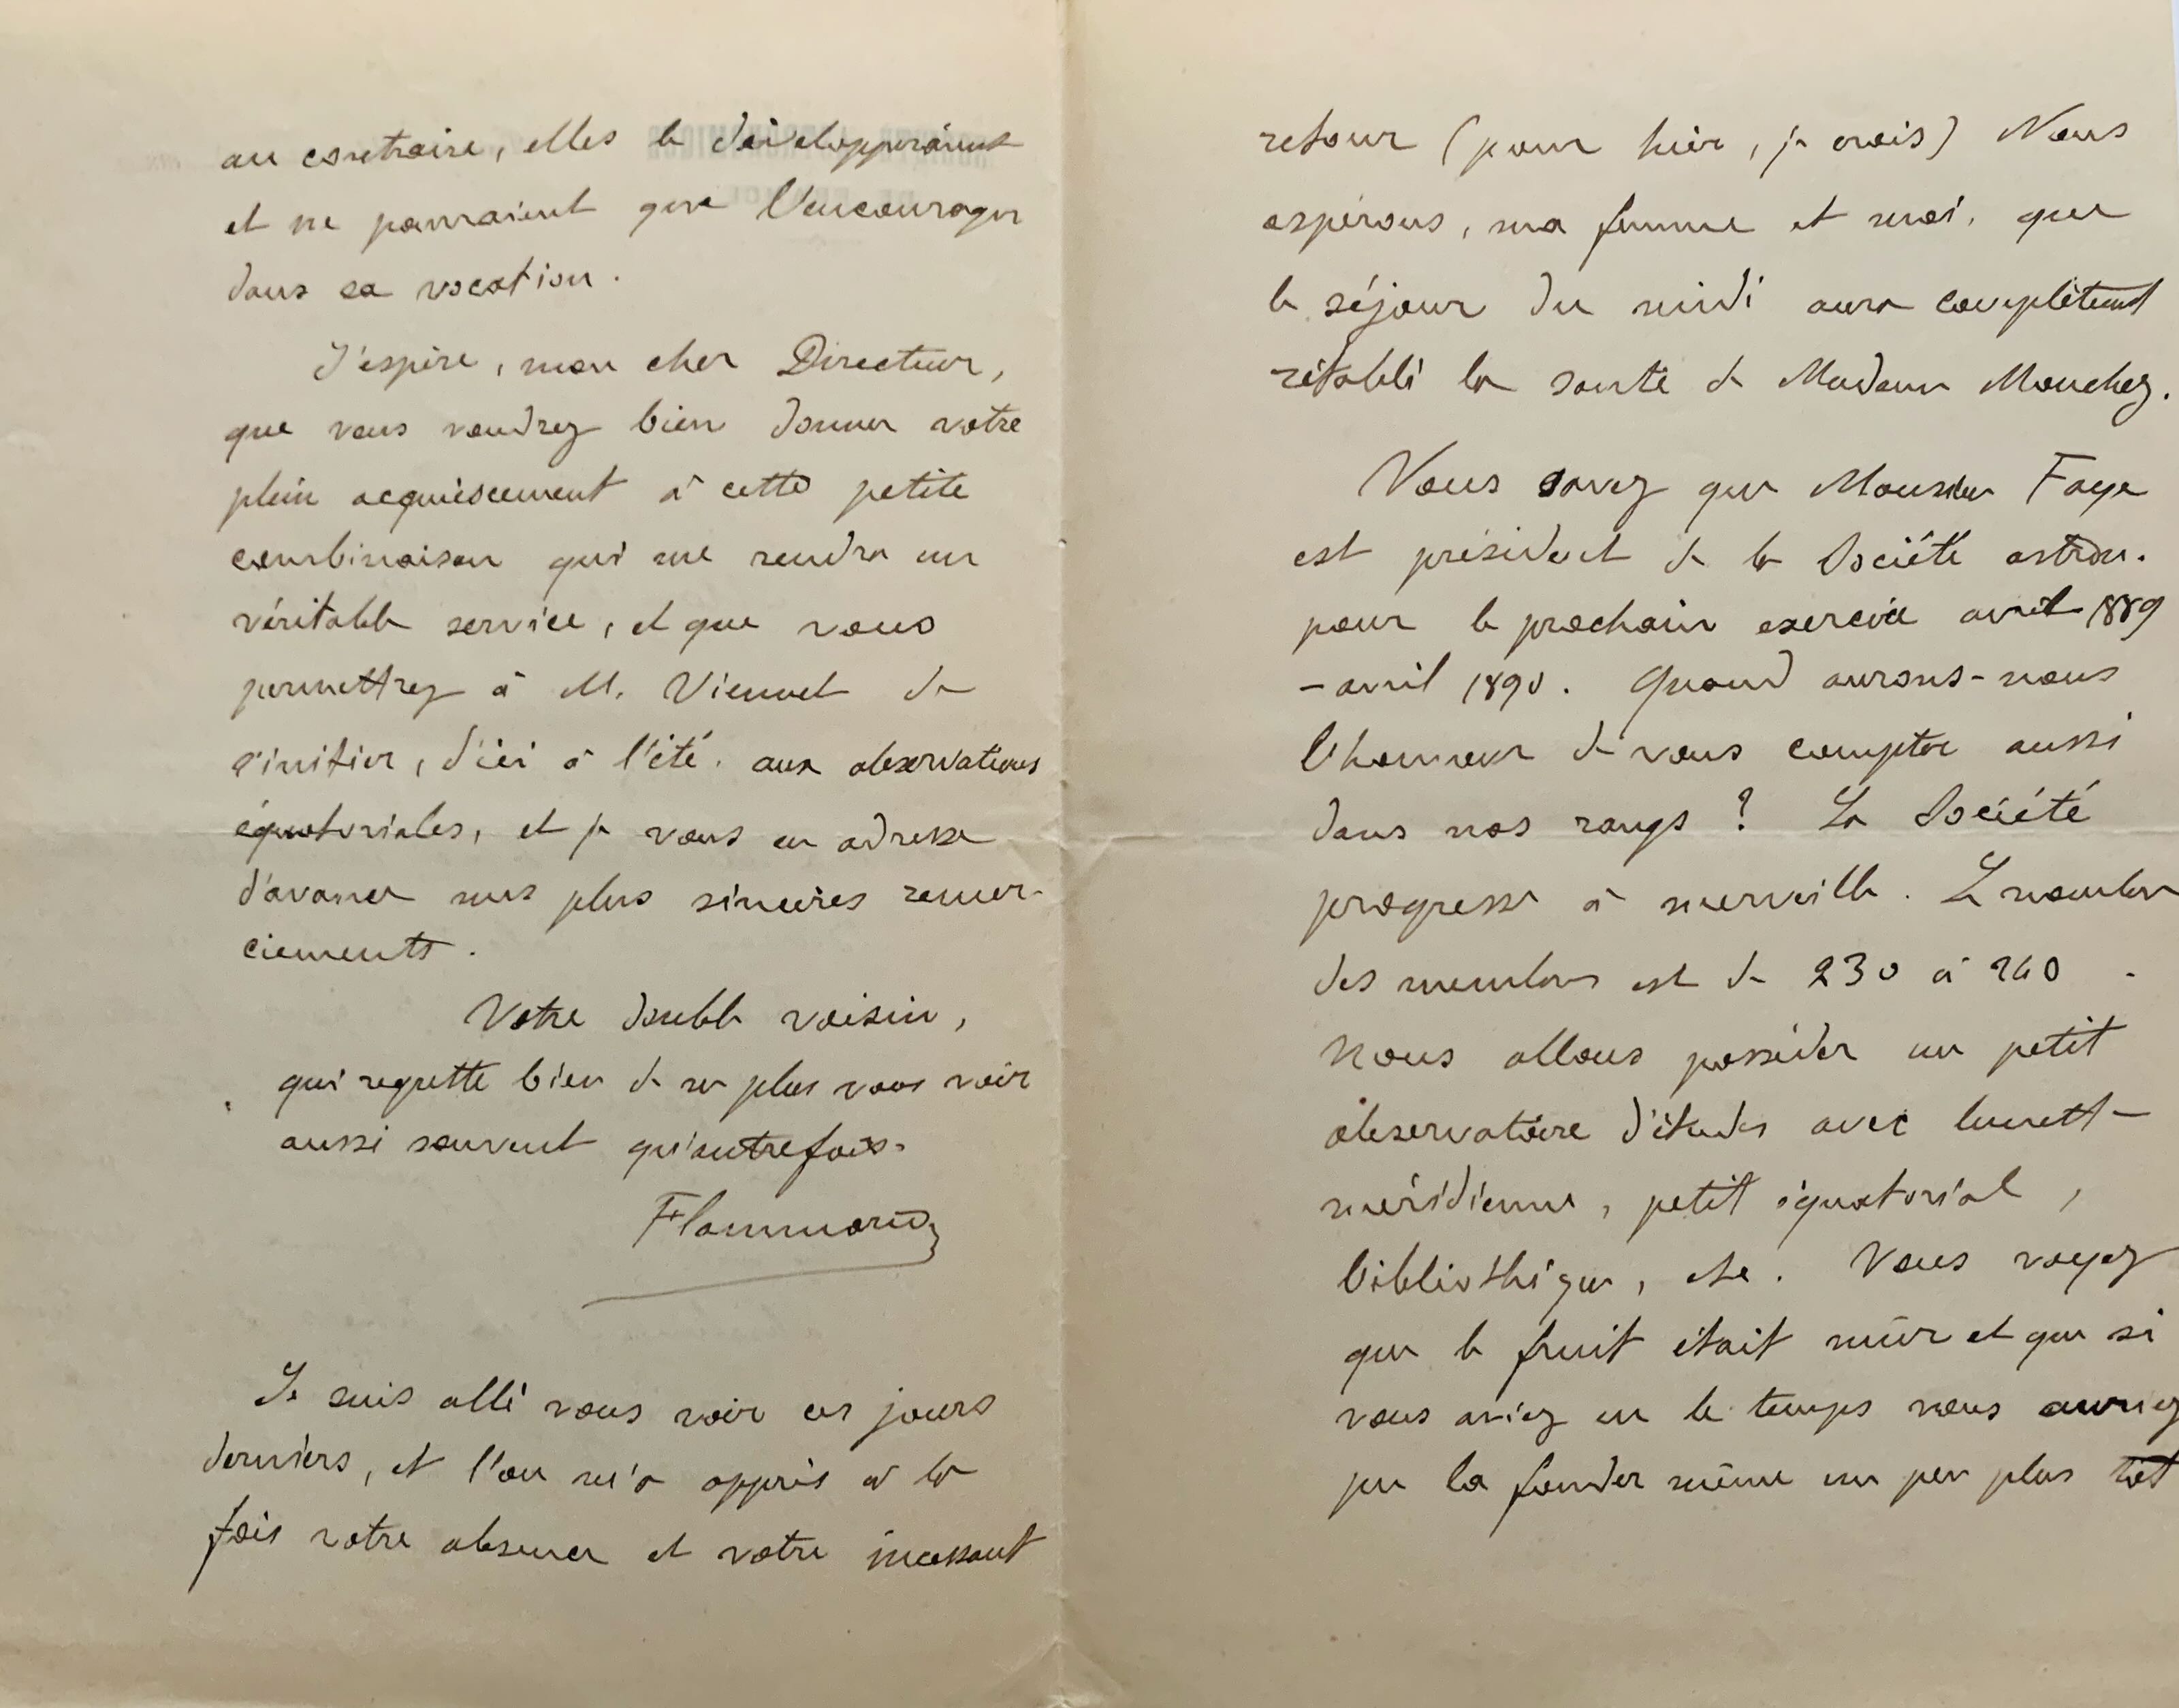 au contraire, elles le développeraient
et ne pourraient que l'encourager
dans sa vocation.
J'espère, mon cher Directeur,
que vous voudrez bien donner votre
plein acquiescement à cette petite
combinaison qui me rendra un
véritable service, et que vous
permettrez à M. Viennet de
s'initier, d'ici à l'été, aux observations
équatoriales, et je vous en adresse
d'avance mes plus sincères remer-
ciements.
Votre double voisin,
qui regrette bien de ne plus vous voir
aussi souvent qu'autrefois.
Flammarion
Je suis allé vous voir ces jours
derniers, et l'on m'a appris à la
fois votre absence et votre incessant
retour (pour hier, je crois) Nous
espérons, ma femme et moi, que
le séjour du midi aura complètement
rétabli la santé de Madame Mouchez.
Vous savez que Monsieur Faye
est président de la Société astron.
pour le prochain exercice avril 1889
- avril 1890. Quand aurons-nous
l'honneur de vous compter aussi
dans nos rangs ? La Société
progresse à merveille. Le nombre
des membres est de 230 à 240.
Nous allons posséder un petit
observatoire d'études avec lunette
méridienne, petit équatorial,
bibliothèque, etc. Vous voyez
que le fruit était mûr et que si
vous aviez eu le temps vous auriez
pu la fonder même un peu plus tôt